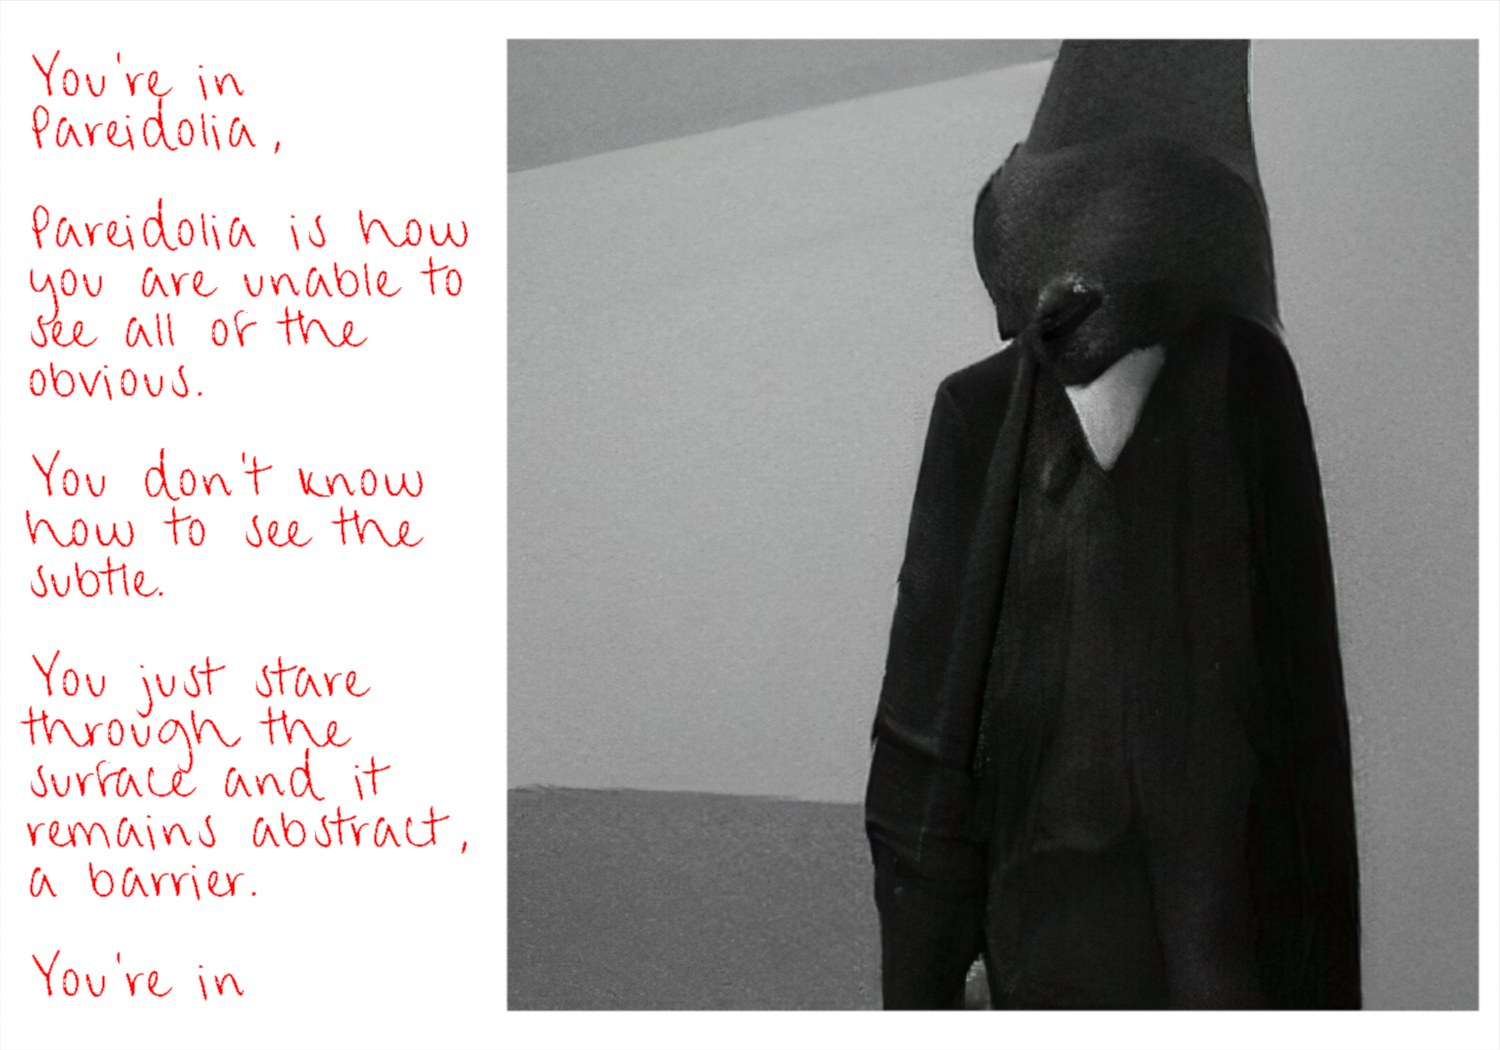 You're in
Pareidolia,
Pareidolia is how
you are unable to
see all of the
obvious.
You don't know
how to see the
subtle.
You just stare
through the
surface and it
remains abstract,
a barrier.
You're in